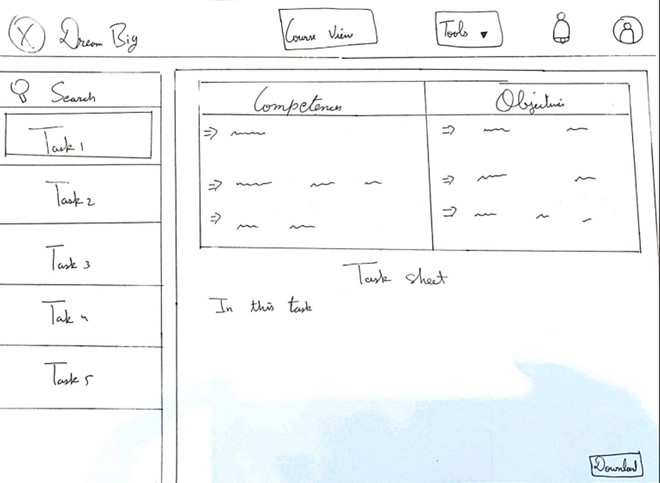 X Dream Big
Course View
Tools
Search
Task 1
Task 2
Task 3
Tak 4
Task 5
Competences
Objectives
Task sheet
In this task
Download